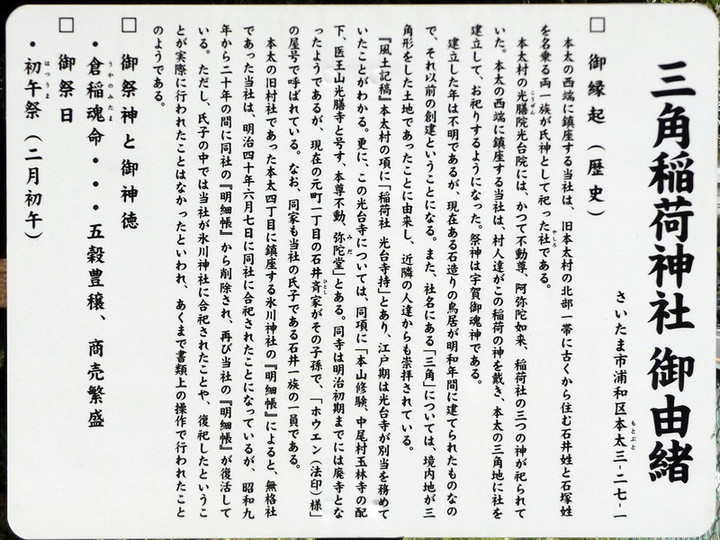 三角稲荷神社 御由緒
さいたま市浦和区本太三-二七-一
もとぶと
□ 御縁起(歴史)
本太の西端に鎮座する当社は、旧本太村の北部一帯に古くから住む石井姓と石塚姓
を名乗る両一族が氏神として祀った社である。
やしろ
本太村の光膳院光台院には、かつて不動尊、阿弥陀如来、稲荷社の三つの神が祀られて
こうぜん
いた。本太の西端に鎮座する当社は、村人達がこの稲荷の神を戴き、本太の三角地に社を
建立して、お祀りするようになった。祭神は宇賀御魂神である。
建立した年は不明であるが、現在ある石造りの鳥居が明和年間に建てられたものなの
で、それ以前の創建ということになる。また、社名にある「三角」については、境内地が三
角形をした土地であったことに由来し、近隣の人達からも崇拝されている。
『風土記稿』本太村の項に「稲荷社 光台寺持」とあり、江戸期は光台寺が別当を務めて
いたことがわかる。更に、この光台寺については、同項に「本山修験、中尾村玉林寺の配
下、医王山光膳寺と号す、本尊不動、弥陀堂」とある。同寺は明治初期までには廃寺とな
みだ
ったようであるが、現在の元町一丁目の石井斉家がその子孫で、「ホウエン(法印)様」
ひとし
の屋号で呼ばれている。なお、同家も当社の氏子である石井一族の一員である。
本太の旧村社であった本太四丁目に鎮座する氷川神社の『明細帳』によると、無格社
であった当社は、明治四十年六月七日に同社に合祀されたことになっているが、昭和九
年から二十年の間に同社の『明細帳』から削除され、再び当社の『明細帳』が復活して
いる。ただし、氏子の中では当社が氷川神社に合祀されたことや、復祀したというこ
とが実際に行われたことはなかったといわれ、あくまで書類上の操作で行われたこと
のようである。
□ 御祭神と御神徳
・倉稲魂命・・・五穀豊穣、商売繁盛
うかのみたま
□ 御祭日
・初午祭(二月初午)
はつうま